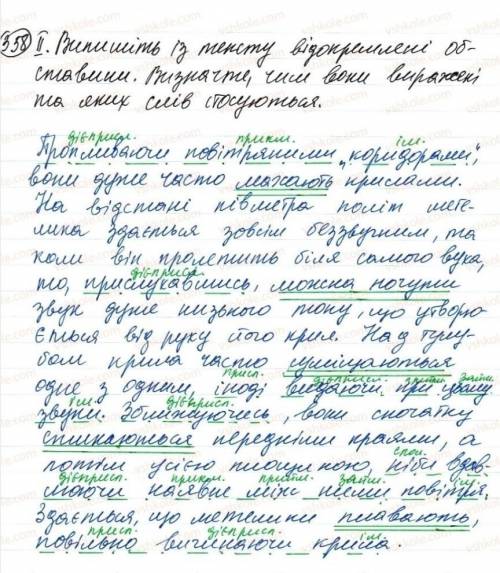 358 II. Випишіть із тексту відокремлені об-
ставини. Визначте, чим вони виражені
та яких слів стосуються.
дієприсл. прикм. ім.
Пропливаючи повітряними „коридорами",
вони дуже часто махають крилами.
На відстані півметра політ мете-
лика здається зовсім беззвучним, та
коли він пролетить біля самого вуха,
дієприсл.
то, прислухавшись, можна почути
звук дуже низького тону, що утворю-
ється від руху його крил. Над тулу-
бом крила часто суміщаються
присл. дієприсл. прийм. займ.
одне з одним, іноді видаючи при цьому
ім. дієприсл.
звуки. Зближуючись, вони спочатку
стикаються передніми краями, а
спол.
потім усією площиною, ніби вдав-
дієприсл. прикм. прийм. займ. ім.
люючи наявне між ними повітря.
Здається, що метелики плавають,
присл. дієприсл. ім.
повільно вигинаючи крила.